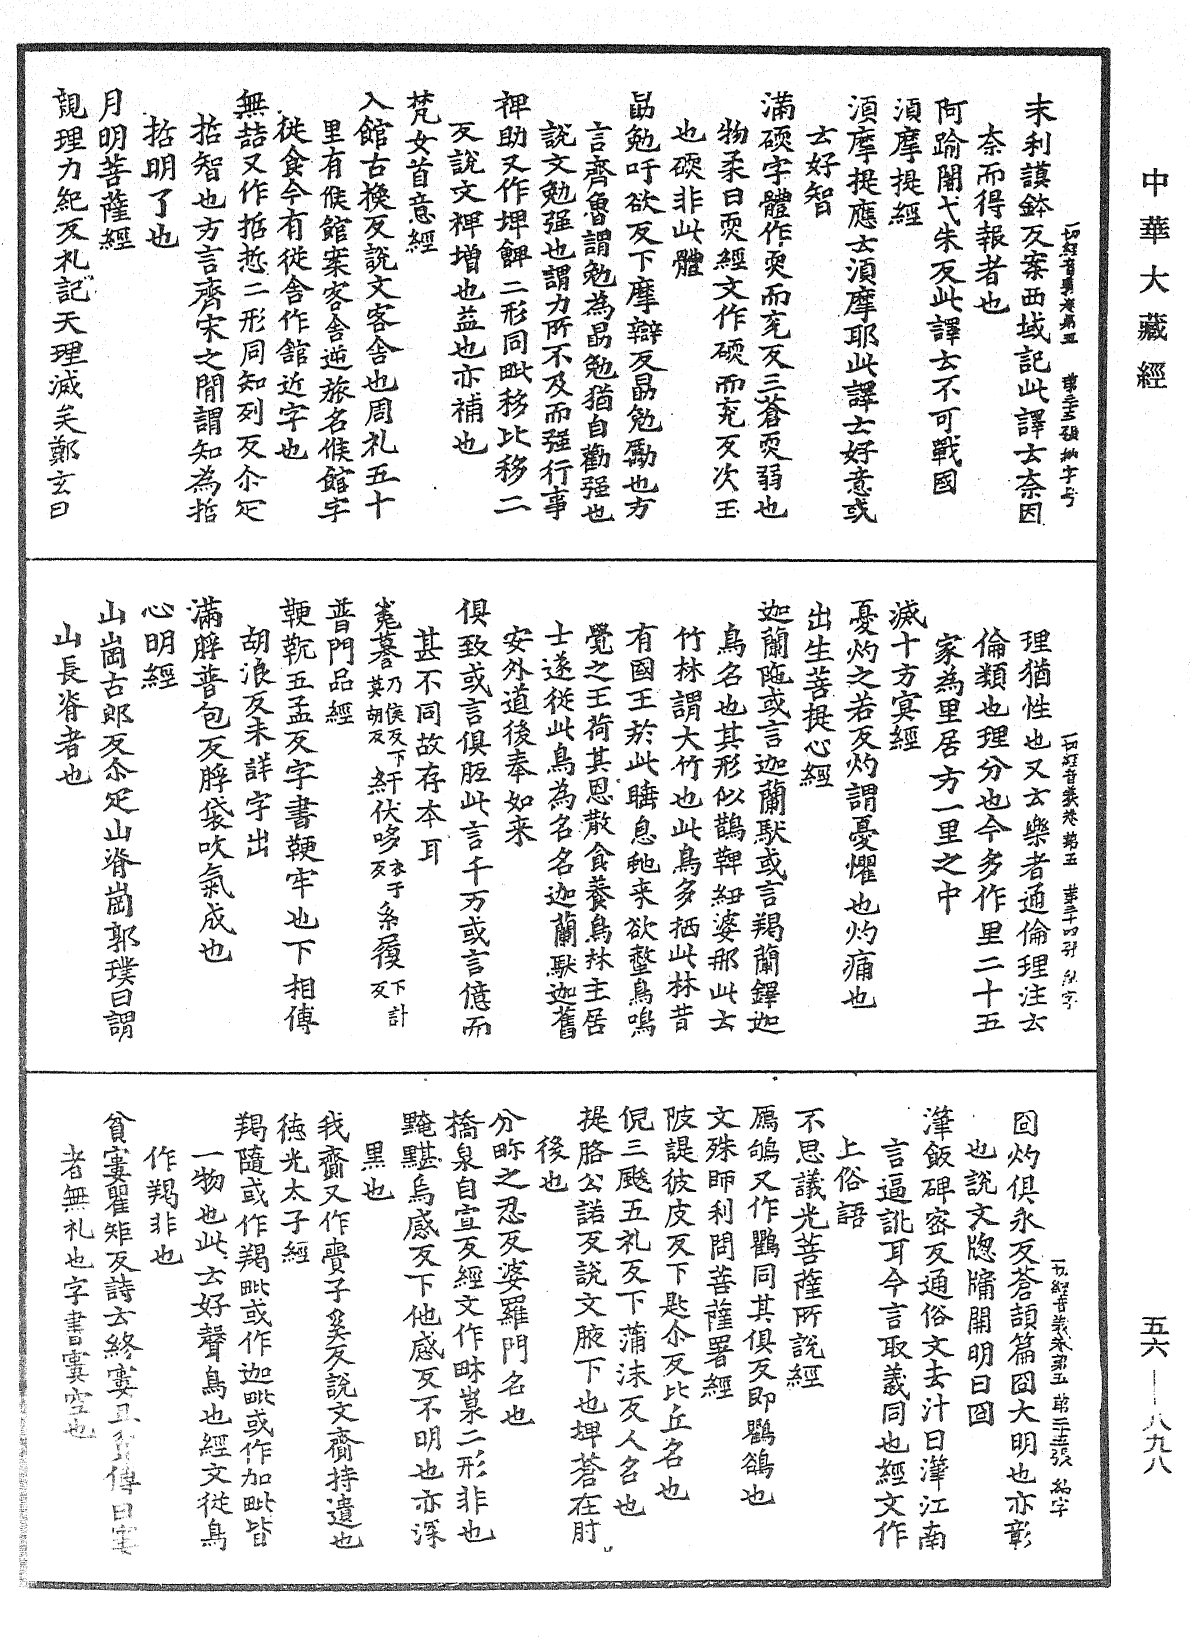 中華大藏經
一切經音義卷第五 第三十三張 納字号
末利謨鉢反案西域記此譯云奈因
奈而得報者也
阿踰闍弋朱反此譯云不可戰國
須摩提經
須摩提應云須摩耶此譯云好意或
云好智
滿碝字體作耎而兖反三蒼耎弱也
物柔曰耎經文作碝而兖反次玉
也碝非此體
勗勉吁欲反下摩辯反勗勉勵也方
言齊魯謂勉為勗勉猶自勸强也
說文勉强也謂力所不及而强行事
裨助又作埤䚜二形同毗移比移二
反說文裨增也益也亦補也
梵女首意經
入館古換反說文客舍也周礼五十
里有候館案客舍逆旅名候館字
從食今有從舍作舘近字也
無喆又作哲悊二形同知列反尒疋
哲智也方言齊宋之閒謂知為哲
哲明了也
月明菩薩經
覩理力紀反礼記天理滅矣鄭玄曰
一切經音義卷第五 第三十四張 納字
理猶性也又云樂者通倫理注云
倫類也理分也今多作里二十五
家為里居方一里之中
滅十方冥經
憂灼之若反灼謂憂懼也灼痛也
出生菩提心經
迦蘭陁或言迦蘭馱或言羯蘭鐸迦
鳥名也其形似鵲鞞紐婆那此云
竹林謂大竹也此鳥多栖此林昔
有國王於此睡息虵來欲螫鳥鳴
覺之王荷其恩散食養鳥林主居
士遂從此鳥為名名迦蘭馱迦舊
安外道後奉如來
俱致或言俱胝此言千万或言億而
甚不同故存本耳
㲦䔾乃侯反下莫胡反 紆伏哆衣于反 系履下計反
普門品經
鞕䩑五孟反字書鞕牢也下相傳
胡浪反未詳字出
滿脬普包反脬袋吹氣成也
心明經
山崗古郎反尒疋山脊崗郭璞曰謂
山長脊者也
一切經音義卷第五 第三十五張 納字
囧灼俱永反蒼頡篇囧大明也亦彰
也說文牕牖開明曰囧
潷飯碑密反通俗文去汁曰潷江南
言逼訛耳今言取義同也經文作
上俗語
不思議光菩薩所說經
鴈鴝又作鸜同其俱反即鸜鵒也
文殊師利問菩薩署經
陂諟彼皮反下匙尒反比丘名也
倪三颰五礼反下蒲沫反人名也
提胳公諾反說文腋下也埤蒼在肘
後也
分畛之忍反婆羅門名也
撟泉自宣反經文作𤱶㵗二形非也
黤黮烏感反下他感反不明也亦深
黑也
我齎又作賷子奚反說文齎持遺也
德光太子經
羯隨或作羯毗或作迦毗或作加毗皆
一物也此云好聲鳥也經文從鳥
作䳚非也
貧窶瞿矩反詩云終窶且貧傳曰窶
者無礼也字書窶空也
五六——八九八